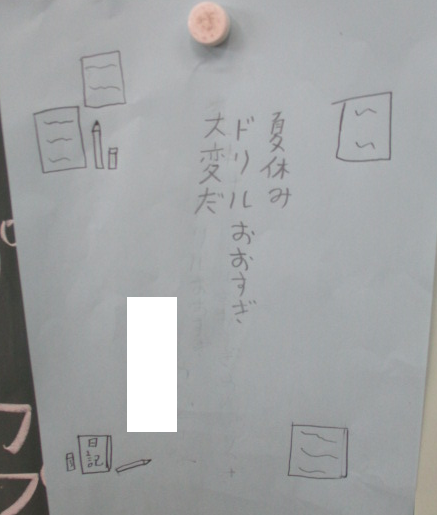 夏休み
ドリルおおすぎ
大変だ
日記